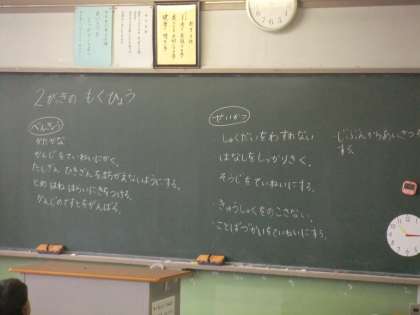 2がっきの もくひょう
べんきょう
かたかな
かんじをていねいにかく。
たしざん ひきざんをまちがえないようにする。
とめ はね はらいにきをつける。
かんじのてすとをがんばる。
せいかつ
・しゅくだいをわすれない
はなしをしっかりきく。
そうじをていねいにする。
・きゅうしょくをのこさない。
・ことばづかいをていねいにする。
・じぶんからあいさつを
する。